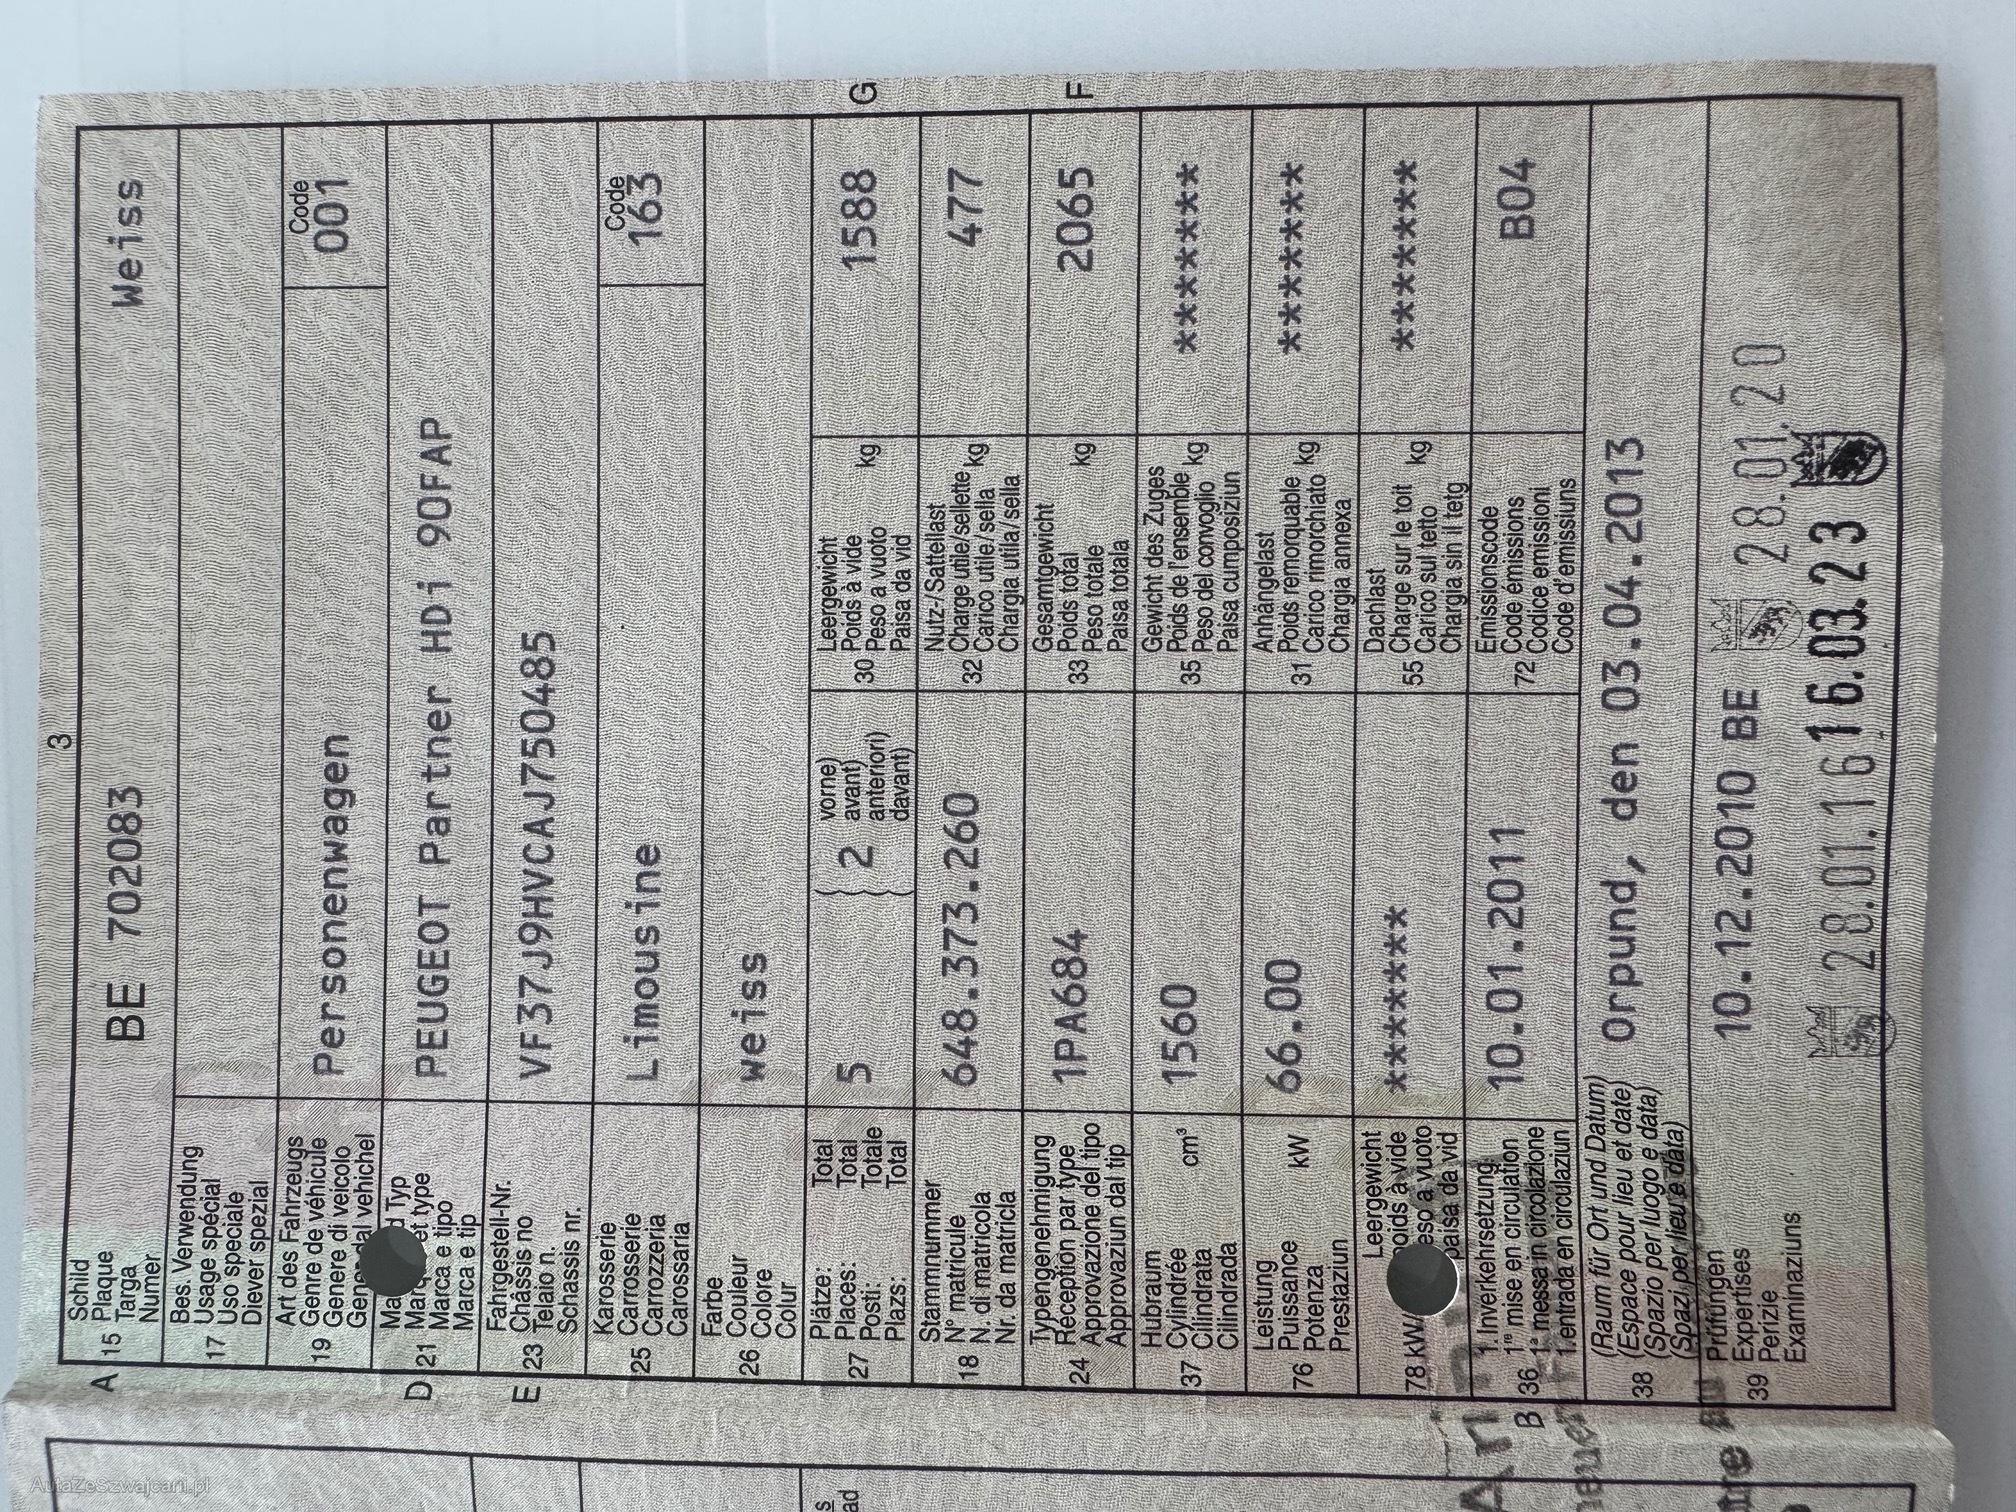 3
A 15 Schild Plaque Targa Numer BE 702083 Weiss
17 Bes. Verwendung
Usage spécial
Uso speciale
Diever spezial
19 Art des Fahrzeugs
Genre de véhicule
Genere di veicolo
dal vehichel
Personenwagen
Code
001
D 21 Typ
et type
Marca e tipo
Marca e tip
PEUGEOT Partner HDi 90FAP
E 23 Fahrgestell-Nr.
Châssis no
Telaio n.
Schassis nr.
VF37J9HVCAJ750485
25 Karosserie
Carrosserie
Carrozzeria
Carossaria
Limousine
Code
163
26 Farbe
Couleur
Colore
Colur
weiss
27 Plätze: Total
Places: Total
Posti: Totale
Plazs: Total
5 ( 2 vorne)
avant)
anteriori)
davant)
30 Leergewicht
Poids à vide
Peso a vuoto kg
Paisa da vid
1588 G
18 Stammnummer
N° matricule
N. di matricola
Nr. da matricla
648.373.260
32 Nutz-/Sattellast
Charge utile/sellette kg
Carico utile/sella
Chargia utila/sella
477
24 Typengenehmigung
Réception par type
Approvazione del tipo
Approvaziun dal tip
1PA684
33 Gesamtgewicht
Poids total kg
Peso totale
Paisa totala
2065 F
37 Hubraum
Cylindrée cm³
Cilindrata
Cilindrada
1560
35 Gewicht des Zuges
Poids de l'ensemble kg
Peso del convoglio
Paisa cumposiziun
*******
76 Leistung
Puissance kW
Potenza
Prestaziun
66.00
31 Anhängelast
Poids remorquable kg
Carico rimorchiato
Chargia annexa
*******
78 kW/ Leergewicht
poids à vide
peso a vuoto
paisa da vid
*******
55 Dachlast
Charge sur le toit kg
Carico sul tetto
Chargia sin il tetg
*******
B 36 1. Inverkehrsetzung
1re mise en circulation
1a messa in circolazione
1. entrada en circulaziun
10.01.2011
72 Emissionscode
Code émissions
Codice emissioni
Code d'emissiuns
B04
38 (Raum für Ort und Datum)
(Espace pour lieu et date)
(Spazio per luogo e data)
(Spazi per lieu e data)
Orpund, den 03.04.2013
39 Prüfungen
Expertises
Perizie
Examinaziuns
10.12.2010 BE 28.01.20
28.01.16 16.03.23
AutaZeSzwajcarii.pl